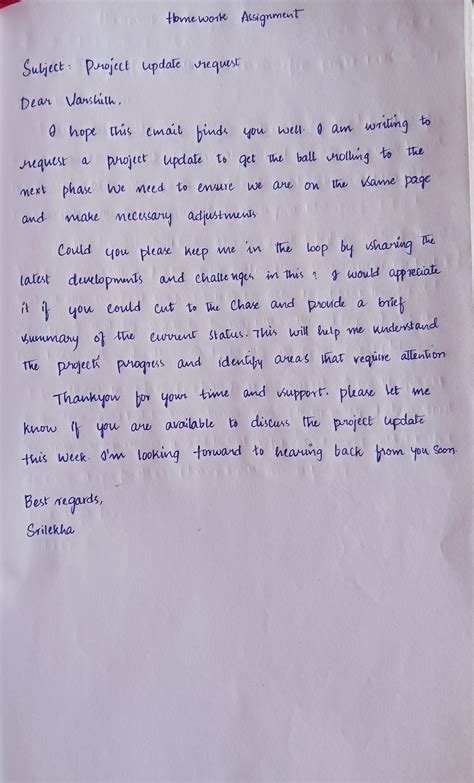 Homework Assignment
Subject: Project update request
Dear Varshith,
I hope this email finds you well. I am writing to
request a project update to get the ball rolling to the
next phase We need to ensure we are on the same page
and make necessary adjustments
Could you please keep me in the loop by sharing the
latest developments and challenges in this ? I would appreciate
it if you could cut to the chase and provide a brief
summary of the current status. This will help me understand
the project's progress and identify areas that require attention
Thankyou for your time and support. please let me
know if you are available to discuss the project update
this week. I'm looking forward to hearing back from you soon.
Best regards,
Srilekha